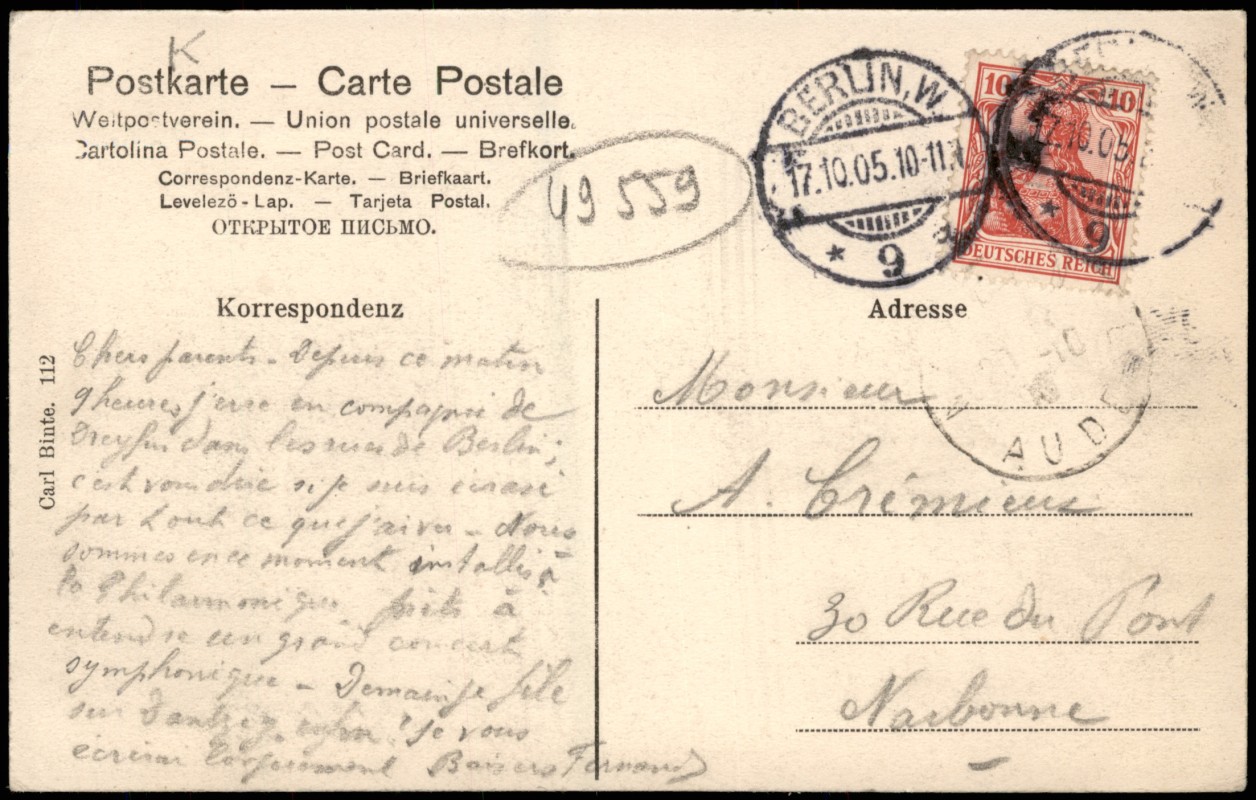 K
Postkarte — Carte Postale
Weltpostverein. — Union postale universelle.
Cartolina Postale. — Post Card. — Brefkort.
Correspondenz-Karte. — Briefkaart.
Levelező-Lap. — Tarjeta Postal.
ОТКРЫТОЕ ПИСЬМО.
49 559
BERLIN, W.
17.10.05.10-11
* 9
10 10
DEUTSCHES REICH
17.10.05
* 9
Korrespondenz
Chers parents - Depuis ce matin
9 heures j'erre en compagnie de
Dreyfus dans les rues de Berlin;
c'est vous dire si je suis écrasé
par tout ce que j'ai vu - Nous
sommes en ce moment installés à
la Philarmonique prêts à
entendre un grand concert
symphonique - Demain je file
sur Dantzig, enfin! Je vous
écrirai longuement Baisers Fernand
Carl Binte. 112
Adresse
AUDE
Monsieur
A. Crémieux
30 Rue du Pont
Narbonne